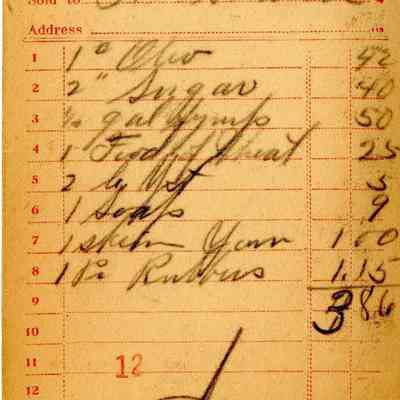 Sold to
Address
1 1# Oleo 42
2 2" Sugar 40
3 ½ gal Syrup 50
4 1 Food of Wheat 25
5 2 5
6 1 Soap 9
7 1 skein Yarn 1 00
8 1 Pr Rubbers 1.15
3 86
9
10
11 12
12